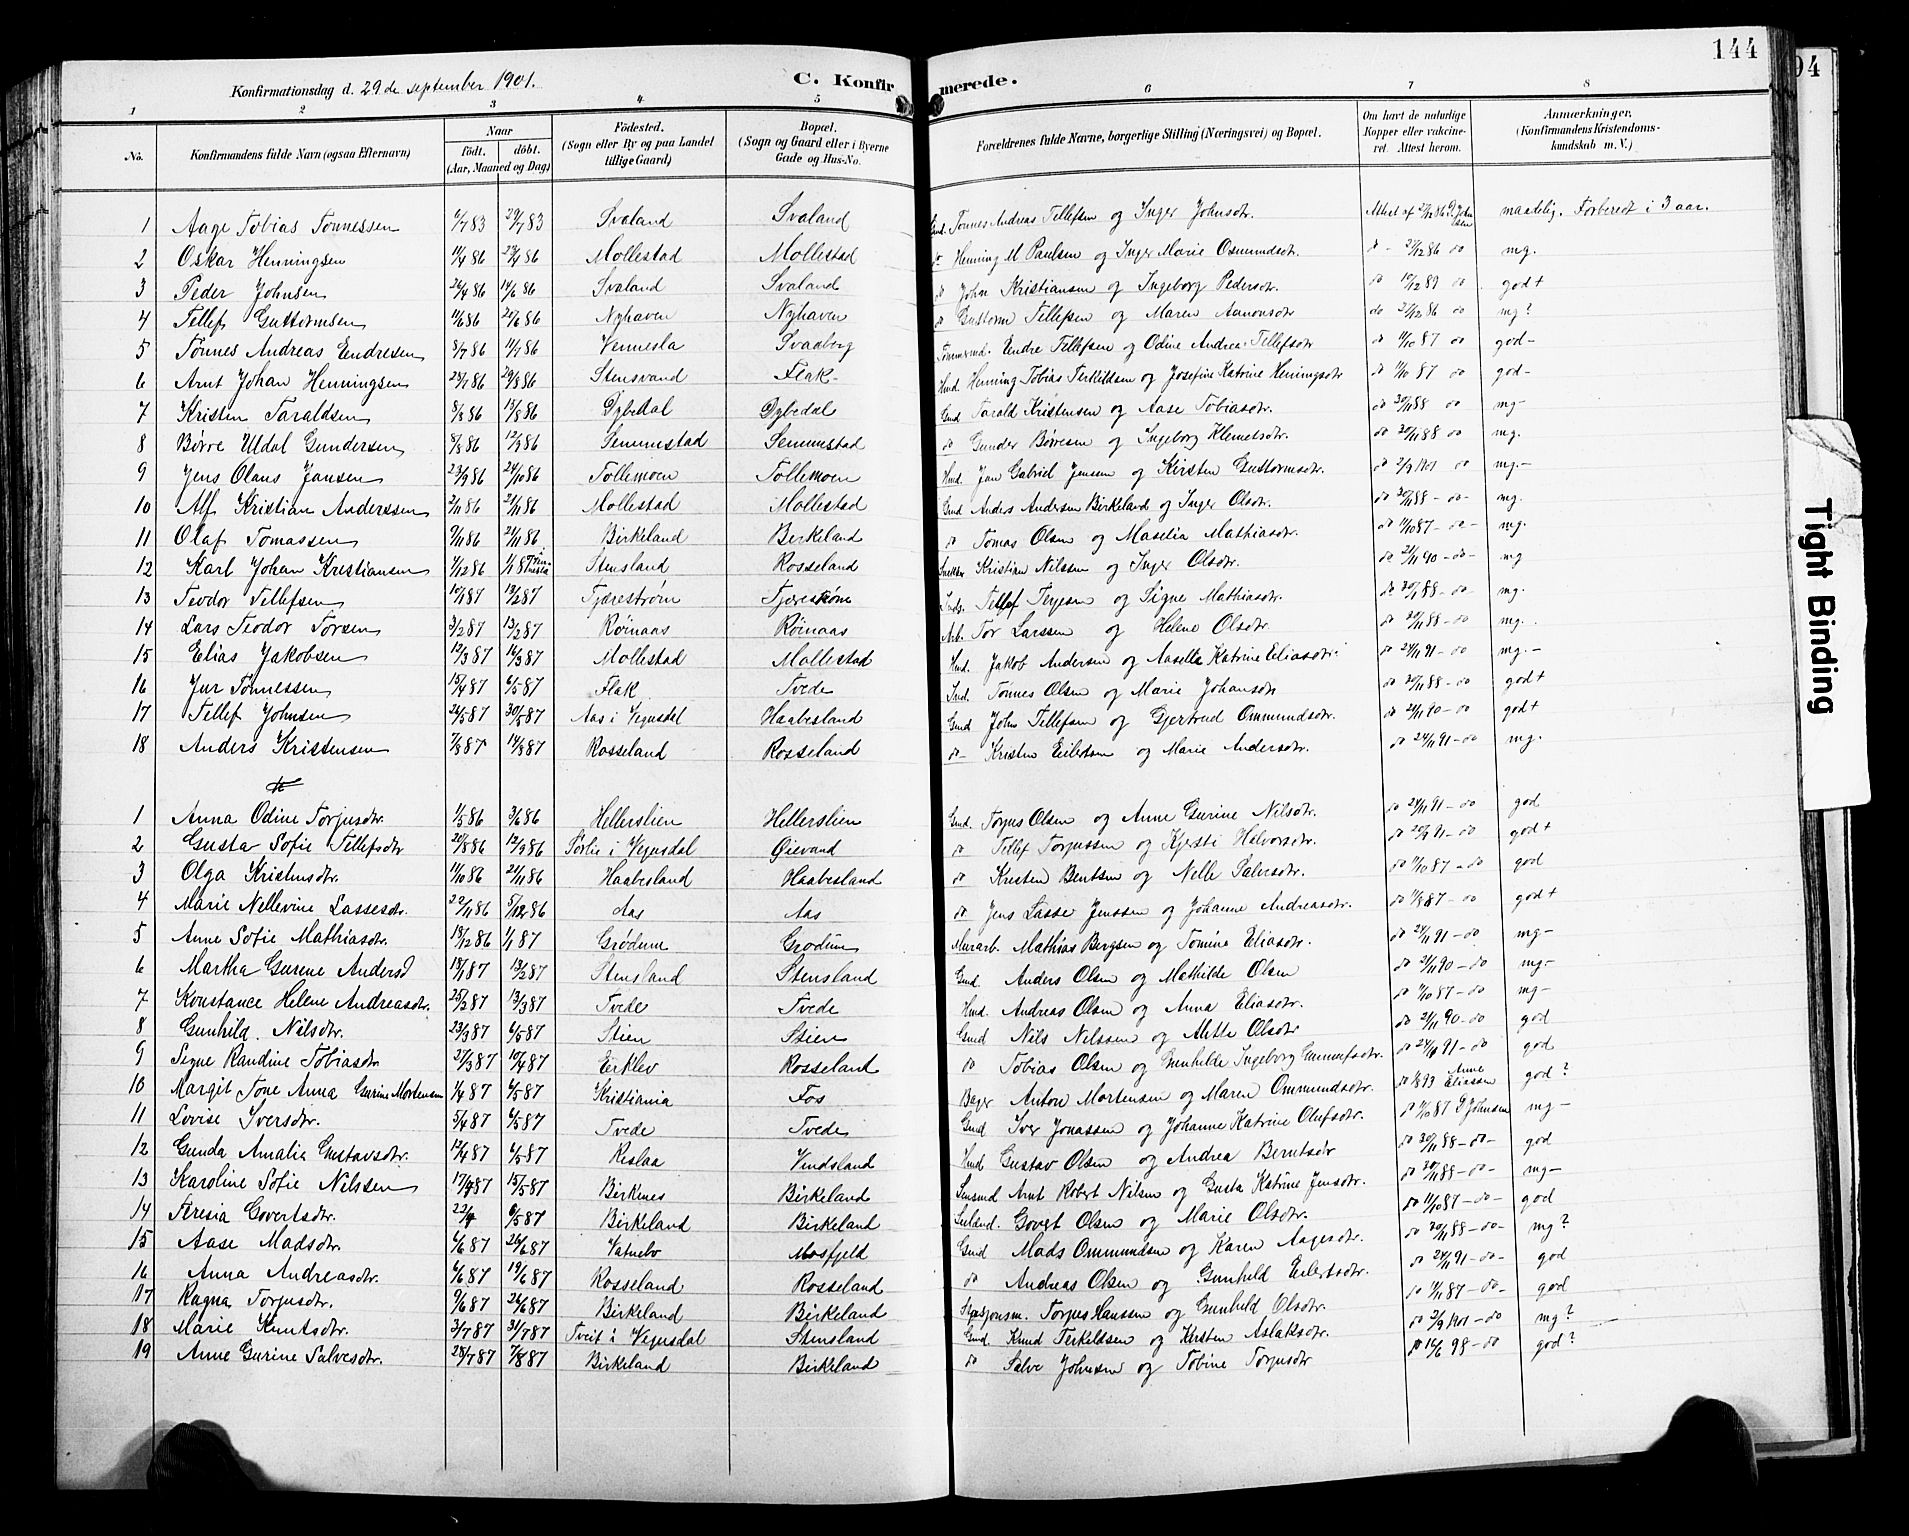 144
94
Konfirmationsdag d. 29de september 1901.
C. Konfirmerede.
1 2 3 4 5 6 7 8
No. Konfirmandens fulde Navn (ogsaa Efternavn) Naar födt. döbt. (Aar, Maaned og Dag) Födested. (Sogn eller By og paa Landet tillige Gaard) Bopæl. (Sogn og Gaard eller i Byerne Gade og Hus-No. Forældrenes fulde Navne, borgerlige Stilling (Næringsvei) og Bopæl. Om havt de naturlige Kopper eller vakcineret. Attest herom. Anmærkninger. (Konfirmandens Kristendomskundskab m. V.)
1 Aage Tobias Tønnessen 6/7 83 29/7 83 Svaland Svaland Gmd. Tønnes Andreas Tellefsen og Inger Johnsdtr. Attest af maadelig. Forberedt i 3 aar.
2 Oskar Henningsen 11/4 86 Mollestad Mollestad do Henning M Paulsen og Inger Marie Osmundsdtr. do 27/12 86 do mg.
3 Peder Johnsen 26/4 86 14/6 86 Svaland Svaland do John Kristiansen og Ingeborg Pedersdtr. do 10/12 89 do god+
4 Tellef Guttormsen 11/6 86 Nyhaven Nyhaven do Guttorm Tellefsen og Maren Aanonsdtr do 27/12 86 do mg?
5 Tønnes Andreas Endresen 8/7 86 11/7 86 Vennesla Svaaberg Tømmermd. Endre Tellefsen og Odine Andrea Tellefsdtr do 11/10 87 do god-
6 Arnt Johan Henningsen 25/7 86 29/8 86 Stensvand Flak- Hmd. Henning Tobias Terkeldsen og Josefine Katrine Henningsdtr do 11/10 87 do god-
7 Kristen Taraldsen 8/8 86 15/8 86 Dybedal Dybedal Gmd Tarald Kristensen og Aase Tobiasdtr. do 30/11 88 do mg-
8 Børre Uldal Gundersen 8/8 86 12/9 86 Senumstad Senumstad do Gunder Børesen og Ingeborg Klemetsdtr. do 30/11 88 do mg.
9 Jens Olaus Jansen 23/9 86 24/10 86 Tollemoen Tollemoen Hmd. Jan Gabriel Jensen og Kirsten Guttormsdtr. do 2/9 1901 do mg.-
10 Alf Kristian Anderssen 2/11 86 21/11 86 Mollestad Mollestad Gmd Anders Andersen Birkeland og Inger Olsdtr. do 30/11 88 - do- mg.
11 Olaf Tomassen 9/11 86 21/11 86 Birkeland Birkeland do Tomas Olsen og Maselia Mathiasdtr. do 11/10 87 - do - mg.
12 Karl Johan Kristiansen 1/12 86 1/1 87 Stensland Rosseland Snekker Kristian Nilssen og Inger Olsdtr. do 21/11 90 - do - mg
13 Teodor Tellefsen 10/1 87 13/2 87 Tjærestrøm Tjærestrøm Inds. Tellef Terjesen og Signe Mathiasdtr. do 30/11 88 - do mg.
14 Lars Teodor Torsen 3/2 87 13/2 87 Røinaas Røinaas Arb. Tor Larssen og Helene Olsdtr. do 30/11 88 - do mg.
15 Elias Jakobsen 12/3 87 14/3 87 Mollestad Mollestad Hmd. Jakob Andersen og Aasella Katrine Eliasdtr. do 24/11 91 - do mg.-
16 Jur Tønnessen 15/4 87 6/5 87 Flak Tvede Ind. Tønnes Olsen og Marie Johansdtr do 30/11 88 - do god+
17 Tellef Johnsen 24/5 87 30/5 87 Aas i Vegusdal Haabesland Gmd John Tellefsen og Gjertrud Ommundsdtr. do 21/11 90 - do god+
18 Anders Kristensen 7/8 87 14/8 87 Rosseland Rosseland do- Kristen Eilertsen og Marie Andersdtr. do 24/11 91 - do mg.
1 Anna Odine Torjusdtr. 1/5 86 3/6 86 Hellerslien Hellerslien Gmd. Torjus Olsen og Anne Gurine Nilsdtr. do 24/11 91 - do god
2 Gusta Sofie Tellefsdtr 20/8 86 12/9 86 Sørlie i Vegusdal Øievand do Tellef Torjussen og Kjersti Halvorsdtr. do 20/9 91 - do god+
3 Olga Kristensdtr. 11/10 86 21/11 86 Haabesland Haabesland do Kristen Bentsen og Nelle Salvesdtr. do 11/10 87 - do god
4 Marie Nellevine Lassesdtr. 22/11 86 5/12 86 Aas Aas do Jens Lasse Jenssen og Johanne Andreasdtr. do 11/8 87 - do god+
5 Anne Sofie Mathiasdtr. 18/12 86 1/1 87 Grødum Grødum Murarb. Mathias Bergsen og Tomine Eliasdtr. do 24/11 91 - do mg-
6 Martha Gurine Andersd 18/1 87 13/2 87 Stensland Stensland Gmd. Anders Olsen og Mathilde Olsen do 21/11 90 - do mg-
7 Konstance Helene Andreasdtr. 25/2 87 13/3 87 Tvede Tvede Hmd. Andreas Olsen og Anna Eliasdtr. do 11/10 87 - do mg-
8 Gunhild Nilsdtr. 23/3 87 6/5 87 Stien Stien Gmd Nils Nilssen og Alette Olsdtr do 21/11 90 - do god
9 Signe Randine Tobiasdtr 27/3 87 10/4 87 Eirklev Rosseland do Tobias Olsen og Gunhilde Ingeborg Gunnufsdtr. do 24/11 91 - do god
10 Margit Tone Anna Gurine Mortensen 1/4 87 6/5 87 Kristiania Fos Bager Anton Mortensen og Maren Ommundsdtr. do 93 Anne Eliassen god?
11 Lovise Iversdtr. 5/4 87 6/5 87 Tvede Tvede Gmd Iver Jonassen og Johanne Katrine Olufsdtr. do 11/10 87 D Johnsen mg-
12 Gunda Amalia Gustavsdtr. 12/4 87 6/5 87 Reslaa Vindsland Hmd Gustav Olsen og Andrea Berntsdtr do 30/11 88 - do - god
13 Karoline Sofie Nilssen 17/4 87 15/5 87 Birkenes Birkeland Lensmd Arnt Robert Nilsen og Gusta Katrine Jensdtr. do 30/11 88 - do - mg-
14 Teresia Govertsdtr. 22/4 6/5 87 Birkeland Birkeland Govert Olsen og Marie Olsdtr. do 11/10 87 - do - god
15 Aase Madsdtr. 6/6 87 26/6 87 Vatnebo Mosfjeld Gmd Mads Ommundsen og Karen Aagesdtr. do 30/11 88 - do- mg?
16 Anna Andreasdtr. 6/6 87 19/6 87 Rosseland Rosseland do Andreas Olsen og Gunhild Eilertsdtr. do 24/11 91 - do- god
17 Ragna Torjusdtr. 9/6 87 26/6 87 Birkeland Birkeland Torjus Hanssen og Gunhild Olsdtr. do 87 - do- god
18 Marie Knutsdtr. 3/7 87 31/7 87 Tveit i Vegusdal Stensland Gmd. Knud Terkeldsen og Kirsten Aslaksdtr. do 2/9 1901 - do mg?
19 Anne Gurine Salvesdtr. 25/7 87 7/8 87 Birkeland Birkeland do Salve Johnsen og Tobine Torjusdtr do 14/6 98 - do god?
Tight Binding